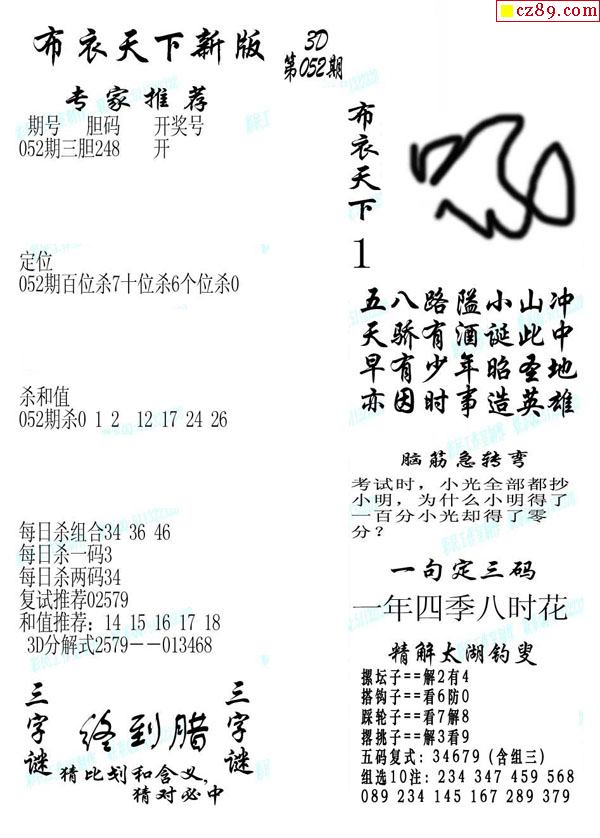 cz89.com
布衣天下新版
3D
第052期
专家推荐
期号 胆码 开奖号
052期三胆248 开
定位
052期百位杀7十位杀6个位杀0
杀和值
052期杀0 1 2 12 17 24 26
每日杀组合34 36 46
每日杀一码3
每日杀两码34
复试推荐02579
和值推荐：14 15 16 17 18
3D分解式2579--013468
三字谜
终到腊
三字谜
猜此划和含义，
猜对必中
布衣天下
1
五八路隘小山冲
天骄有酒诞此中
早有少年昭圣地
亦因时事造英雄
脑筋急转弯
考试时，小光全部都抄
小明，为什么小明得了
一百分小光却得了零
分？
一句定三码
一年四季八时花
精解太湖钓叟
摞坛子==解2有4
搭钩子==看6防0
踩轮子==看7解8
撂挑子==解3看9
五码复式：34679（含组三）
组选10注：234 347 459 568
089 234 145 167 289 379